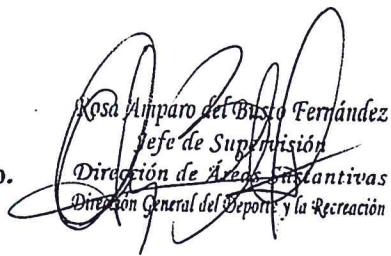 Rosa Amparo del Busto Fernández
Jefe de Supervisión
o. Dirección de Áreas Sustantivas
Dirección General del Deporte y la Recreación